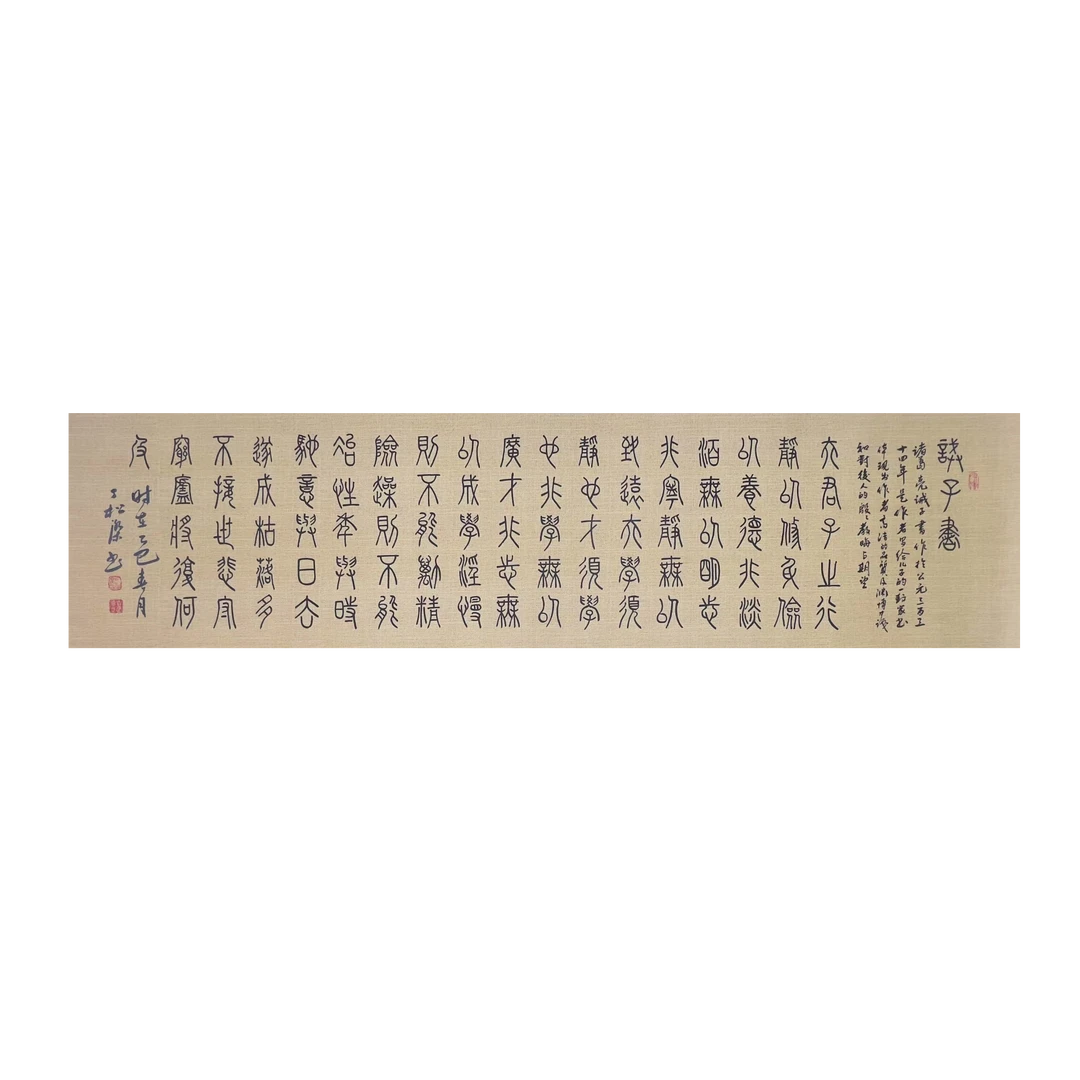 誡子書
諸葛亮诫子書作於公元二百三
十四年是作者写给儿子的一封家书
体现出作者高洁的品質及渊博才識
和對後人的殷殷教誨与期望
夫君子之行
靜以修身儉
以養德非淡
泊無以明志
非寧靜無以
致遠夫學須
靜也才須學
也非學無以
廣才非志無
以成學淫慢
則不能勵精
險躁則不能
冶性年與時
馳意與日去
遂成枯落多
不接世悲守
窮廬將復何
及
时在乙巳春月
松深书